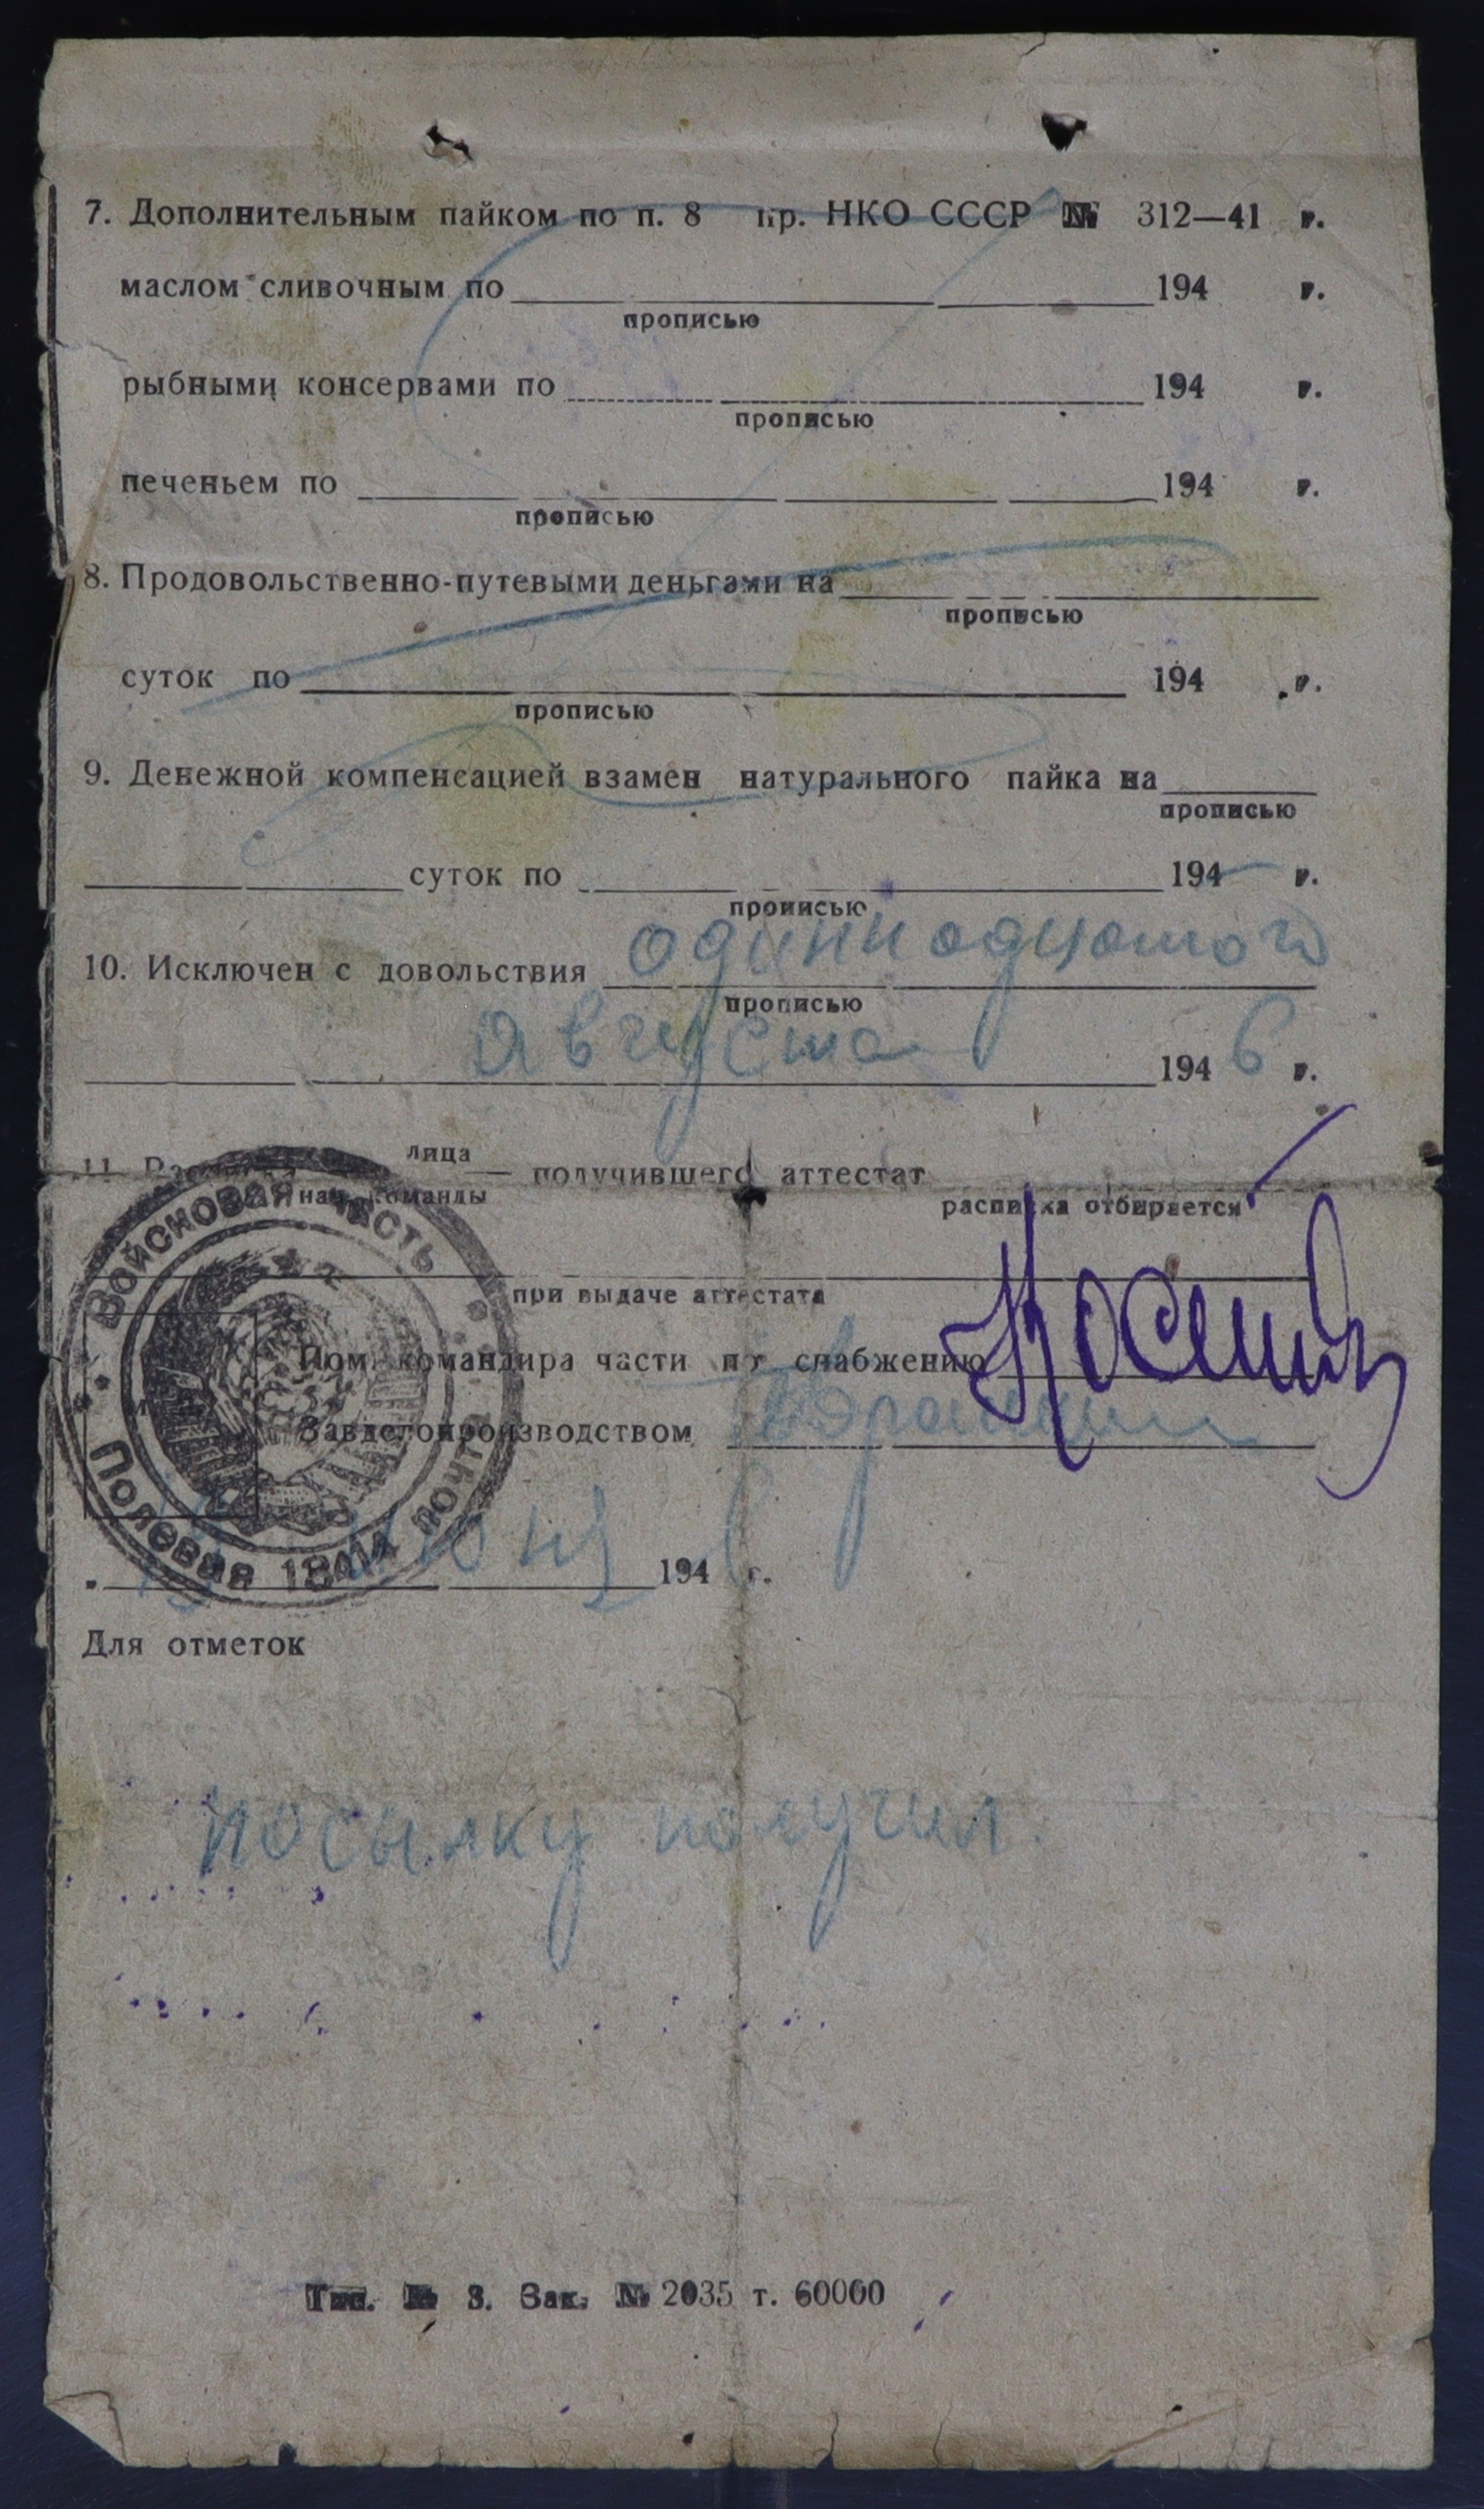 7. Дополнительным пайком по п. 8 пр. НКО СССР № 312—41 г.
маслом сливочным по 194 г.
прописью
рыбными консервами по 194 г.
прописью
печеньем по 194 г.
прописью
8. Продовольственно-путевыми деньгами на
прописью
суток по 194 г.
прописью
9. Денежной компенсацией взамен натурального пайка на
прописью
суток по 194 г.
прописью
10. Исключен с довольствия одиннадцатого
прописью
августа 1946 г.
11. лица — получившего аттестат
нач. команды расписка отбирается
при выдаче аттестата
Пом. командира части по снабжению
Завделопроизводством
194 г.
Войсковая часть
Полевая почта 18414
Для отметок
посылку получил.
Тип. № 3. Зак. № 2035 т. 60000